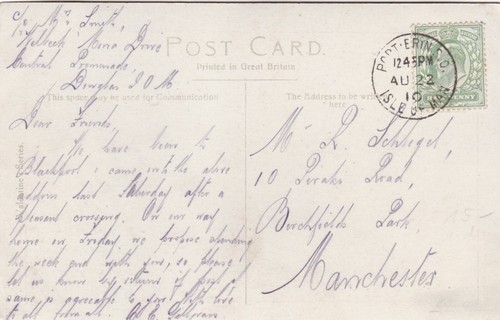 C/o Mrs Smith,
Melbeck, Mona Drive
Central Promenade
Douglas I.O.M.
POST CARD.
Printed in Great Britain
This space may be used for Communication
The Address to be written here.
Valentine's Series.
PORT-ERIN S.O
12.45PM
AU 22
10
ISLE OF MAN
Dear Friends,
We have been to
Blackpool & came into the above
address last Saturday after a
pleasant crossing. On our way
home on Friday, we
the week end with you, so please
let us know by return if
same is agreeable to you. With love
to all from all.
Mr R. Schlegel,
10 Road,
Birchfields Park,
Manchester
15,-